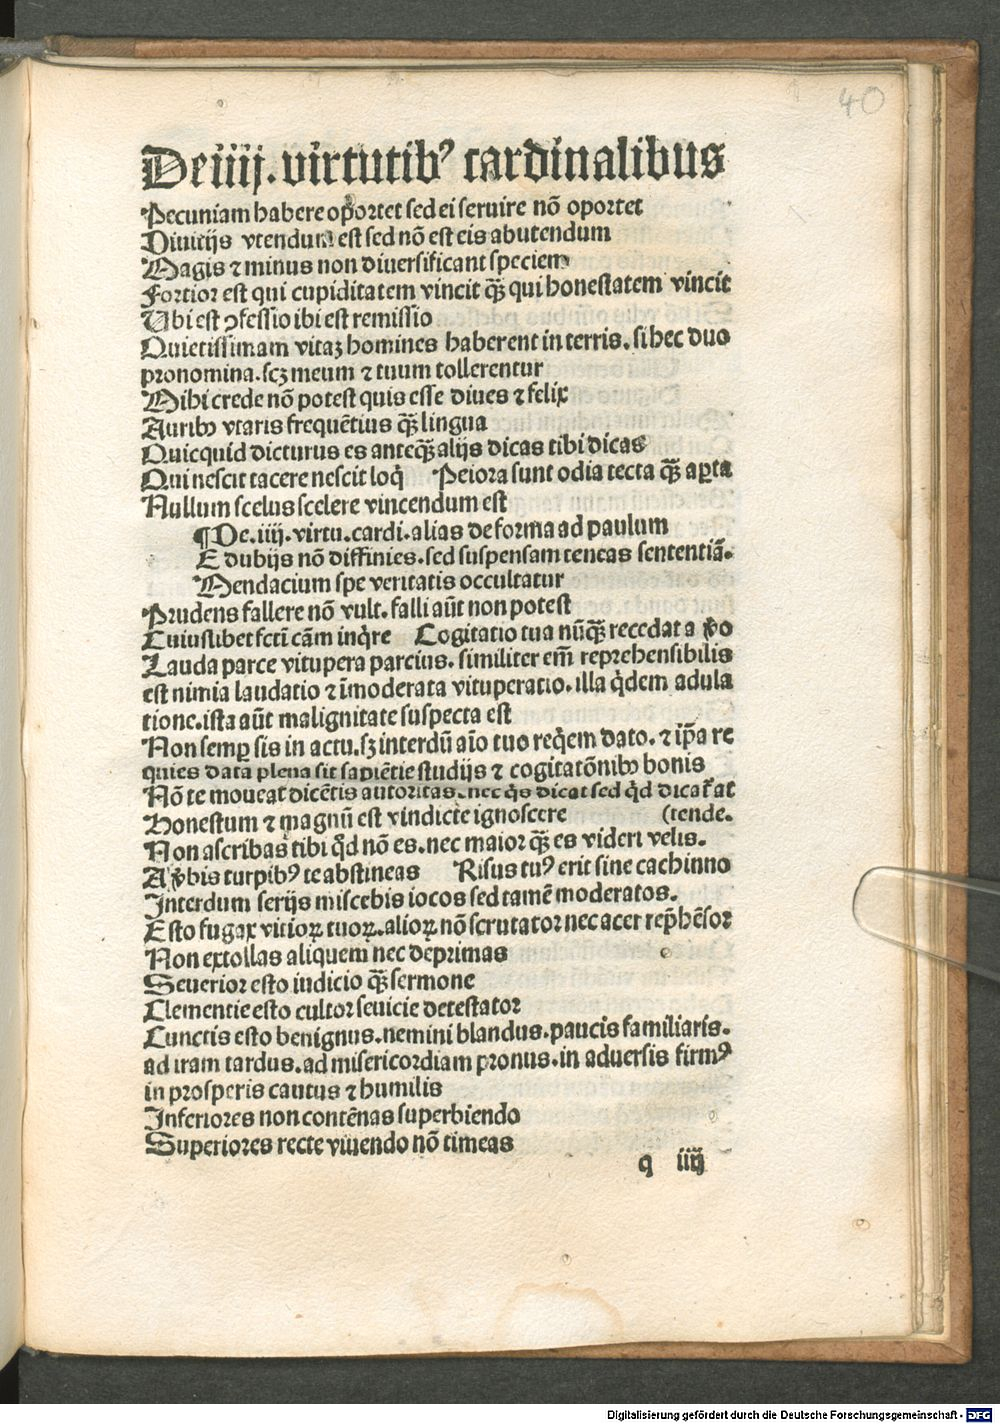 40
De iiij. virtutibꝰ cardinalibus
Pecuniam habere oportet sed ei seruire nō oportet
Diuitijs vtendum est sed nō est eis abutendum
Magis ⁊ minus non diuersificant speciem
Fortior est qui cupiditatem vincit q̄ꝫ qui honestatem vincit
Ubi est ꝯfessio ibi est remissio
Quietissimam vitaꝫ homines haberent in terris. si hec duo
pronomina. scꝫ meum ⁊ tuum tollerentur
Mihi crede nō potest quis esse diues ⁊ felix
Auribꝰ vtaris frequētius q̄ꝫ lingua
Quicquid dicturus es anteq̄ꝫ alijs dicas tibi dicas
Qui nescit tacere nescit loq̇ Peiora sunt odia tecta q̄ꝫ aꝑta
Nullum scelus scelere vincendum est
¶De. iiij. virtu. cardi. alias de forma ad paulum
E dubijs nō diffinies. sed suspensam teneas sententiā.
Mendacium spe veritatis occultatur
Prudens fallere nō vult. falli aūt non potest
Cuiuslibet fcti cām inq̇re Cogitatio tua nūq̄ꝫ recedat a ꝟo
Lauda parce vitupera parcius. similiter em̄ reprehensibilis
est nimia laudatio ⁊ īmoderata vituperatio. illa q̇dem adula
tione. ista aūt malignitate suspecta est
Non semꝑ sis in actu. sꝫ interdū aīo tuo req̇em dato. ⁊ ip̄a re
quies data plena sit sapiētie studijs ⁊ cogitatōnibꝰ bonis
Nō te moueat dicētis autoritas. nec q̇s dicat sed q̇d dicat̄ at
Honestum ⁊ magnū est vindicte ignoscere (tende.
Non ascribas tibi q̇d nō es. nec maior q̄ꝫ es videri velis.
A ꝟbis turpibꝰ te abstineas Risus tuꝰ erit sine cachinno
Interdum serijs miscebis iocos sed tamē moderatos.
Esto fugax vitioꝝ tuoꝝ. alioꝝ nō scrutator nec acer rep̄hēsor
Non extollas aliquem nec deprimas
Seuerior esto iudicio q̄ꝫ sermone
Clementie esto cultor seuicie detestator
Cunctis esto benignus. nemini blandus. paucis familiaris.
ad iram tardus. ad misericordiam pronus. in aduersis firmꝰ
in prosperis cautus ⁊ humilis
Inferiores non contēnas superbiendo
Superiores recte viuendo nō timeas
q iiij
Digitalisierung gefördert durch die Deutsche Forschungsgemeinschaft - DFG